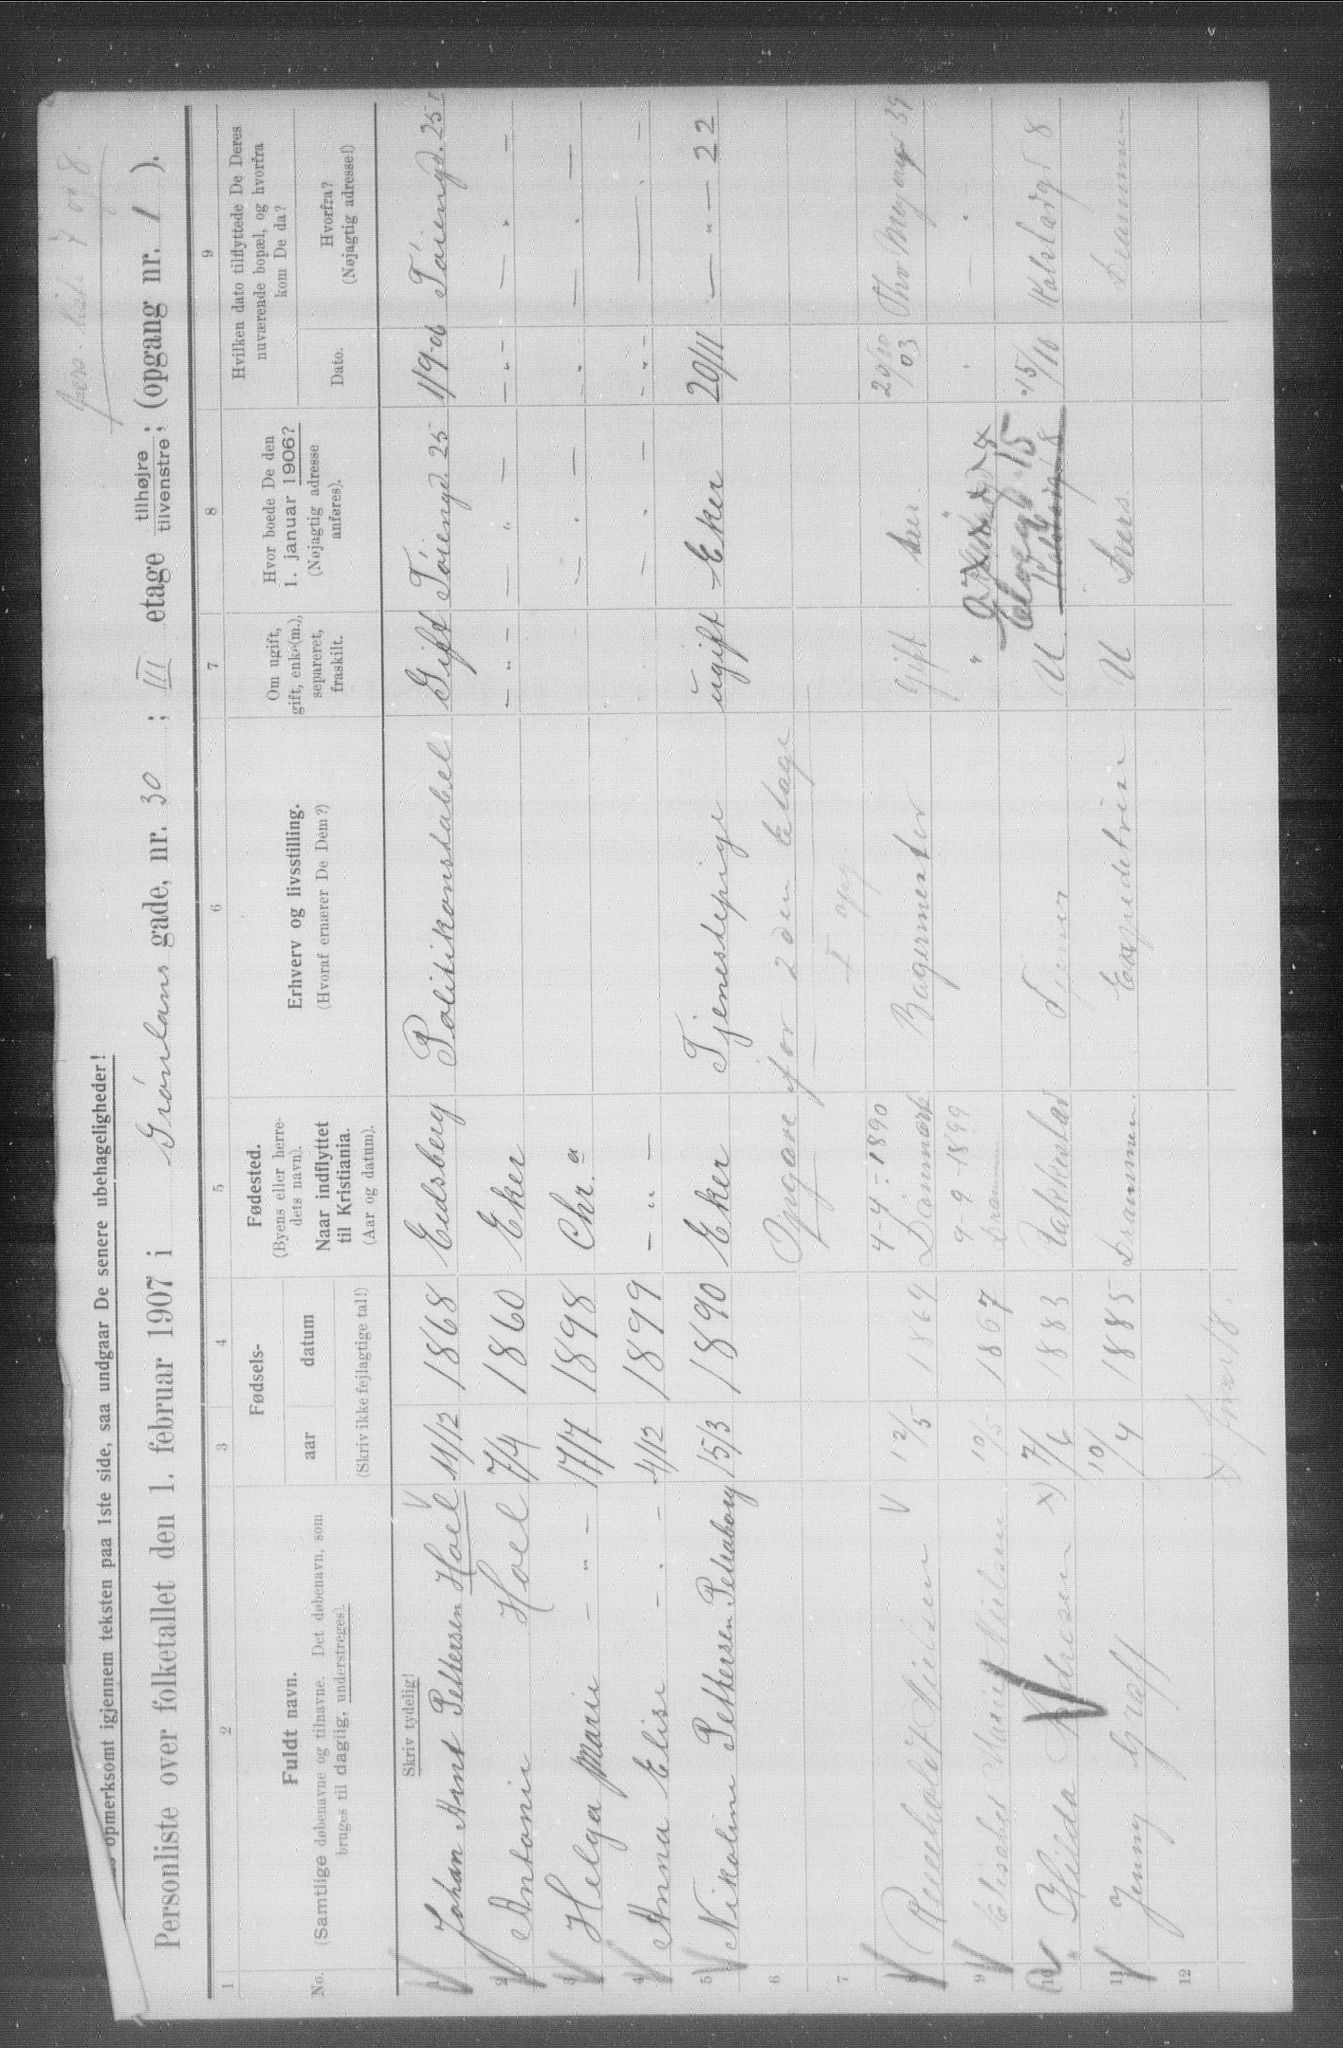 pers. list. 7 og 8.
opmerksomt igjennem teksten paa 1ste side, saa undgaar De senere ubehageligheder!
Personliste over folketallet den 1. februar 1907 i Grønlans gade, nr. 30 ; III etage tilhøjre / tilvenstre ; (opgang nr. 1 ).
1 2 3 4 5 6 7 8 9
No. Fuldt navn. (Samtlige døbenavne og tilnavne. Det døbenavn, som bruges til daglig, understreges).
Fødsels- aar datum (Skriv ikke fejlagtige tal!)
Fødested. (Byens eller herredets navn). Naar indflyttet til Kristiania. (Aar og datum).
Erhverv og livsstilling. (Hvoraf ernærer De Dem?)
Om ugift, gift, enke(m.), separeret, fraskilt.
Hvor boede De den 1. januar 1906? (Nøjagtig adresse anføres).
Hvilken dato tilflyttede De Deres nuværende bopæl, og hvorfra kom De da?
Dato. Hvorfra? (Nøjagtig adresse!)
Skriv tydelig!
1 Johan Arnt Pettersen Hoel V 11/12 1868 Eidsberg Politikonstabel Gift Tøiengd. 25 1/9-06 Tøiengd. 25
2 Antonie Hoel 7/4 1860 Eker - " - - " - - " - - " -
3 Helga Marie - " - 17/7 1898 Chr.a - " - - " - - " -
4 Anna Elise - " - 4/12 1899 - " - - " - - " - - " -
5 Nikoline Pettersen Petraborg 15/3 1890 Eker Tjenestepige ugift Eker 20/11 - " - 22
6 Opgave for 2den Etage
7 I opg
4-4-1890
8 Nielsen V 12/5 1869 Danmark Bagermester Gift her. 20/10 03 Thv Meyersgd 39
9-9-1899
9 Elisabet Marie Nielsen 10/5 1867 Dram " " " - " -
10 Hilda Andresen x) 7/6 1883 Rakkestad Tjener U. 15 15/10 Kalstadgd 8
11 Jenny Graff 10/4 1885 Drammen. Expeditrise U Drammen
12